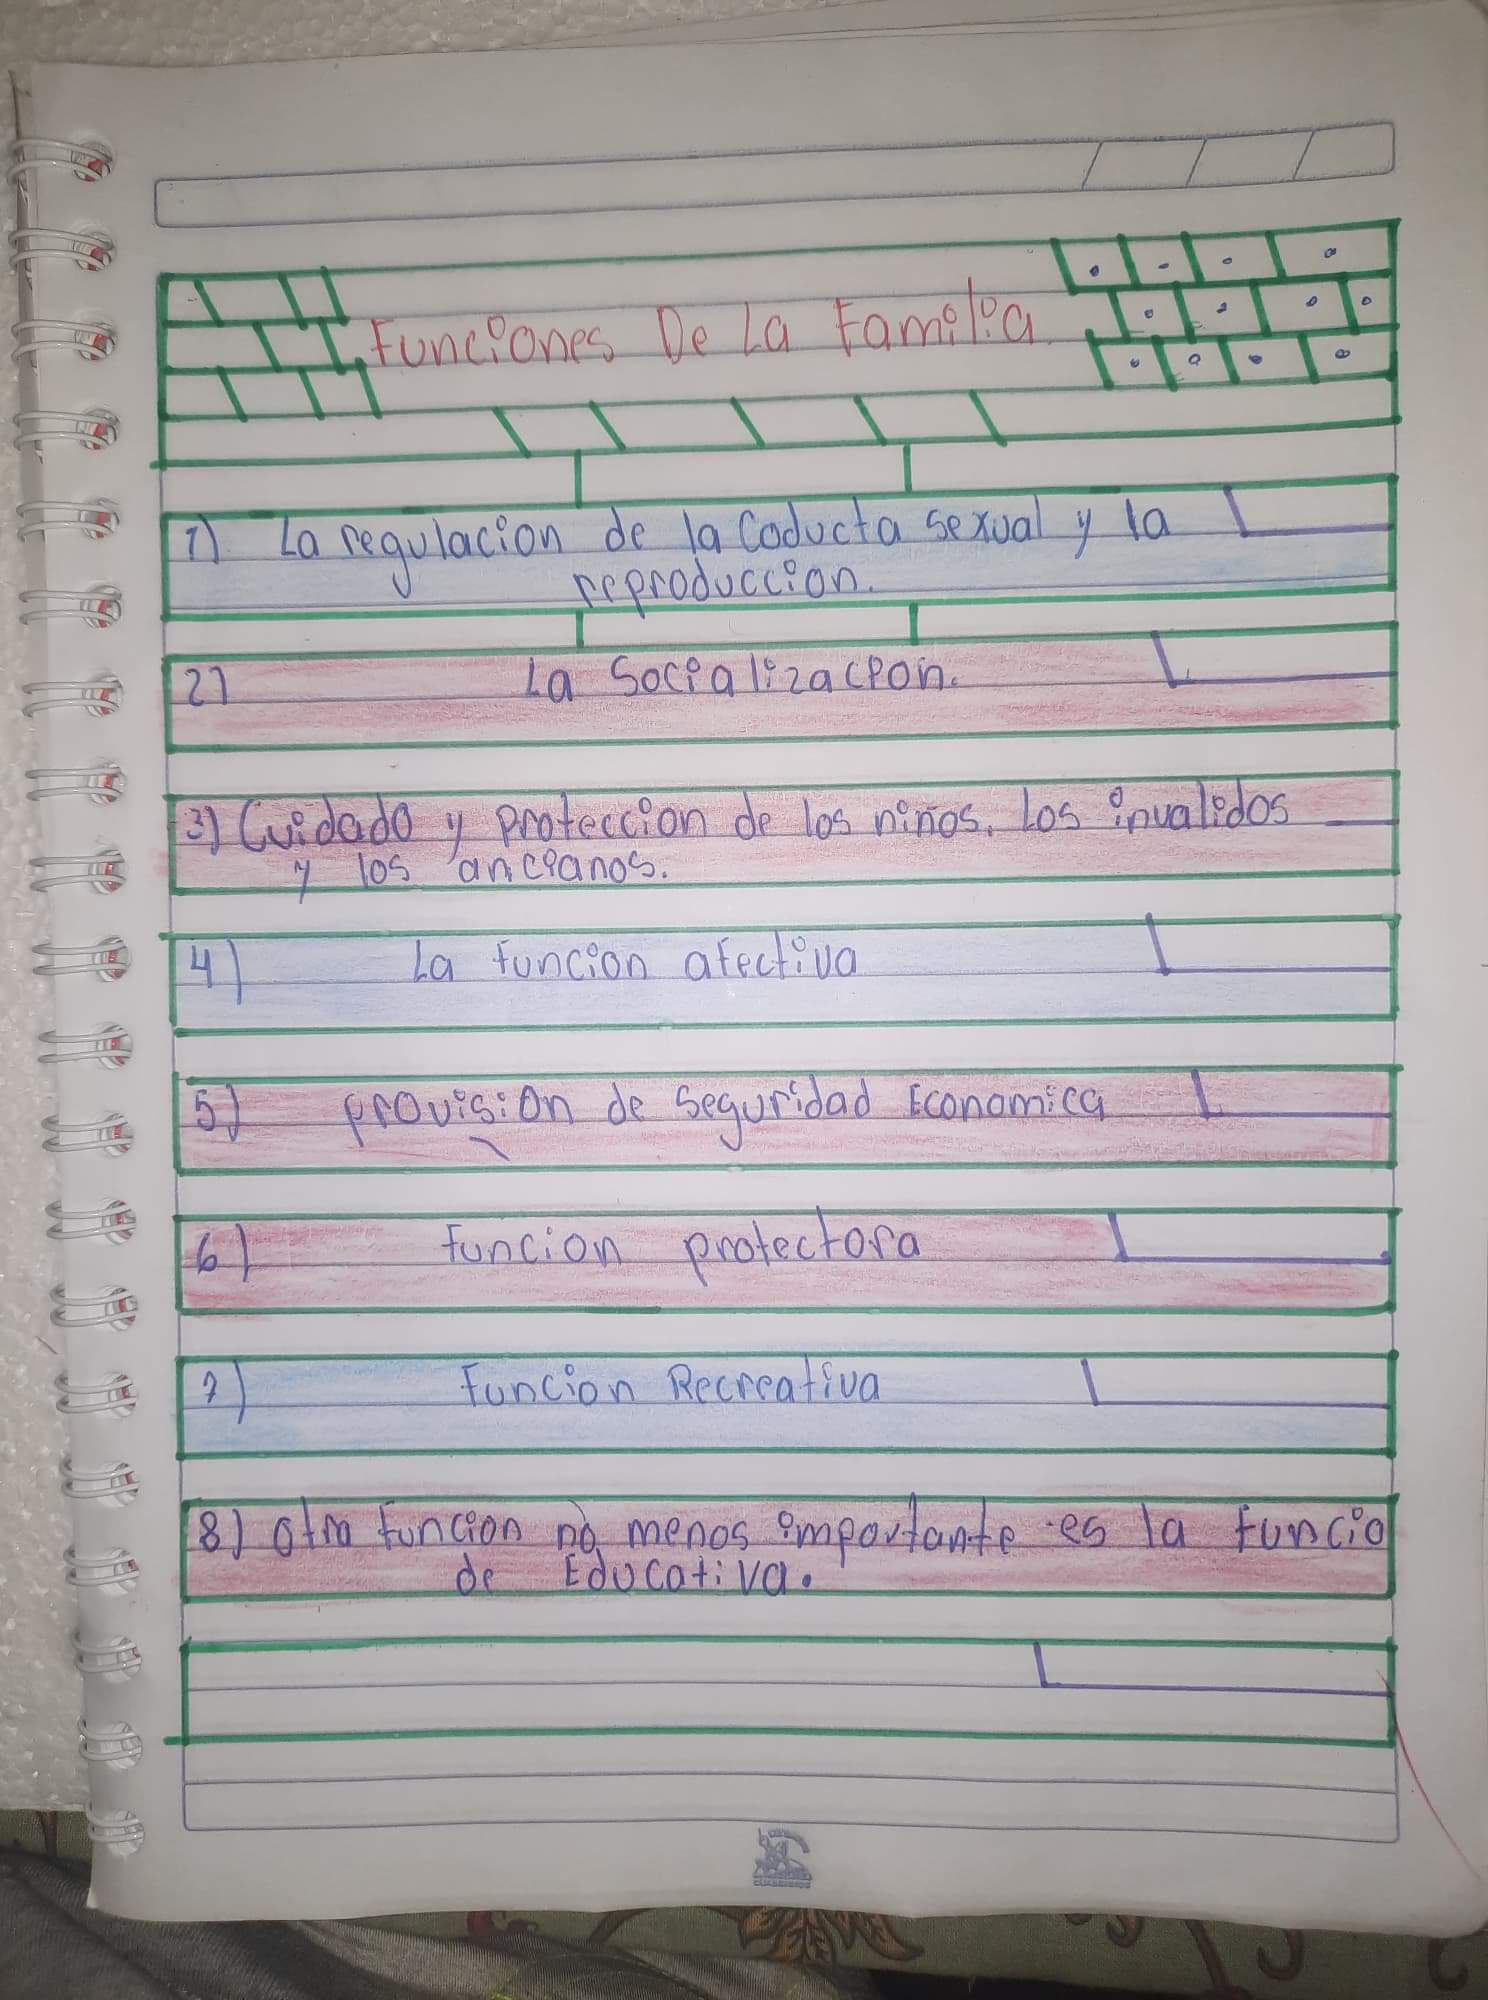 Funciones De La Familia
1) La regulacion de la Coducta sexual y la
reproduccion.
2) La Socializacion.
3) Cuidado y proteccion de los niños. Los invalidos
y los ancianos.
4) La funcion afectiva
5) provision de Seguridad Economica
6) funcion protectora
7) Funcion Recreativa
8) otra funcion no menos importante es la funcio
de Educativa.